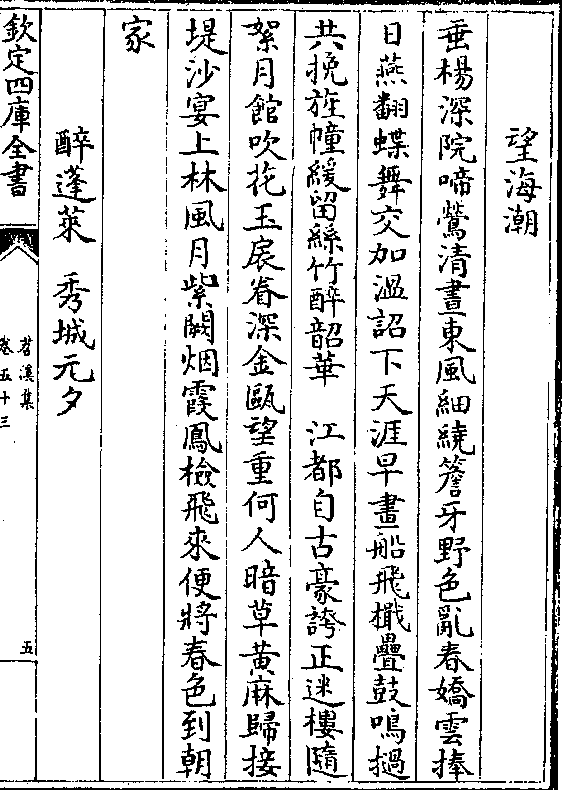 望海潮
垂楊深院啼鶯清晝東風細繞簷牙野色亂春嬌雲捧
日燕翻蝶舞交加溫詔下天涯早畫船飛檝疊鼓鳴撾
共挽旌幢緩留絲竹醉韶華　江都自古豪誇正迷樓隨
絮月館吹花玉扆眷深金甌望重何人暗草黄麻歸接
堤沙宴上林風月紫闕烟霞鳳檢飛來便將春色到朝
家
醉蓬萊　秀城元夕
欽定四庫全書
苕溪集
卷五十三
五